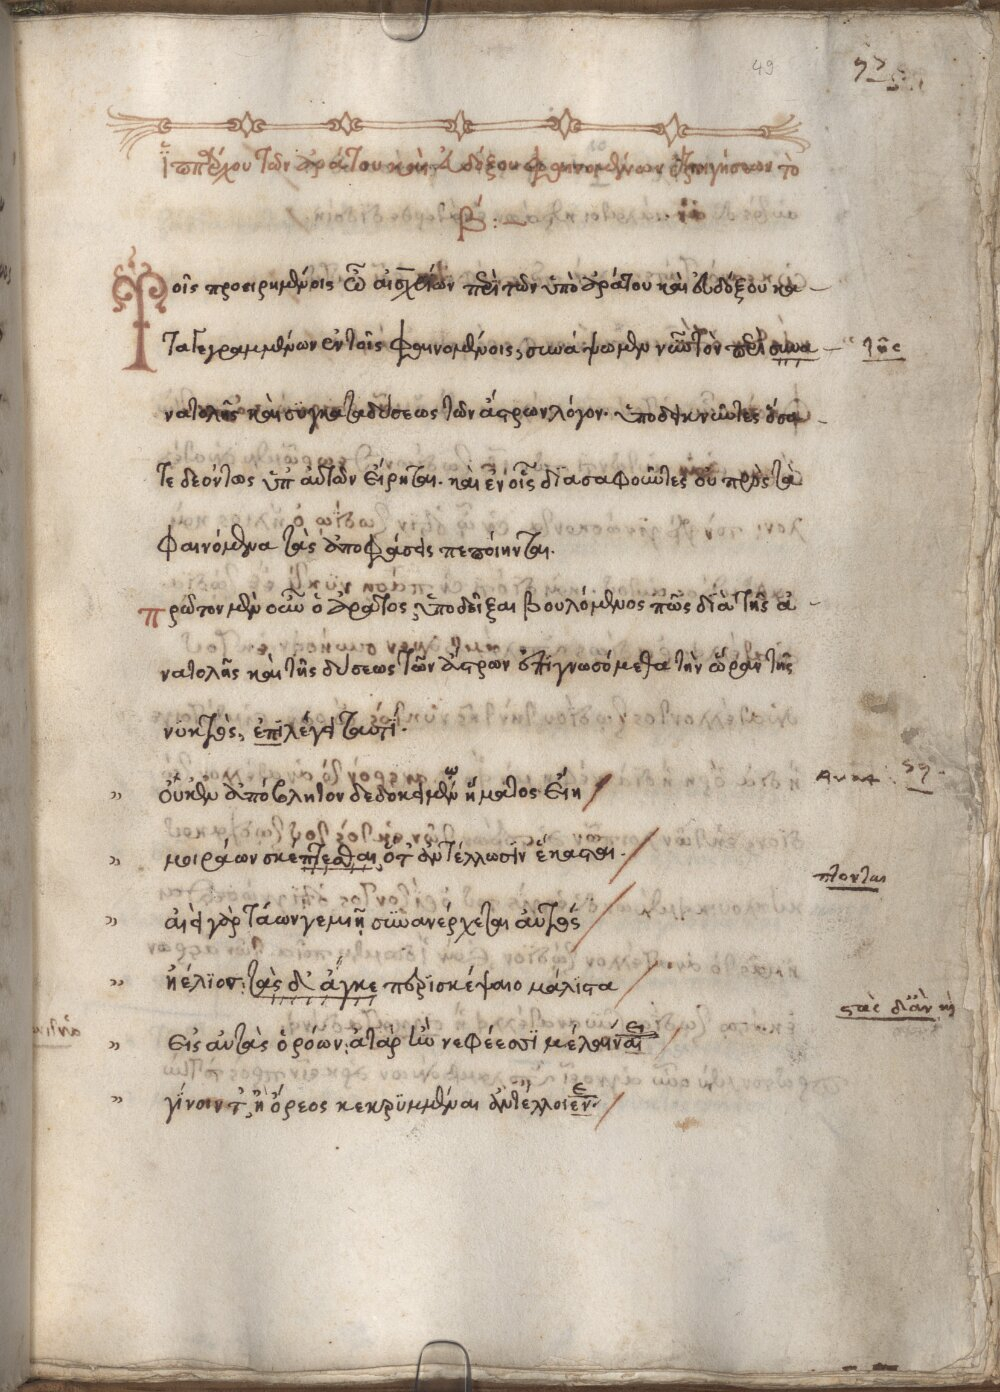 49
Ἱππάρχου τῶν Ἀράτου καὶ Εὐδόξου φαινομένων ἐξηγήσεων τὸ
β΄:~
Τοῖς προειρημένοις ὦ αἰσχρίων περὶ τῶν ὑπὸ ἀράτου καὶ εὐδόξου κα
ταγεγραμμένων ἐν τοῖς φαινομένοις, συνάψωμεν νῦν τὸν περὶ συνα
της
νατολῆς καὶ συγκαταδύσεως τῶν ἄστρων λόγον. ὑποδεικνῦντες ὅσα
τε δεόντως ὑπ' αὐτῶν εἴρηται. καὶ ἐν οἷς διασαφοῦντες οὐ πρὸς τὰ
φαινόμενα τὰς ἀποφάσεις πεποίηνται.
πρῶτον μὲν οὖν ὁ ἄρατος, ὑποδεῖξαι βουλόμενος πῶς διὰ τῆς ἀ
νατολῆς καὶ τῆς δύσεως τῶν ἄστρων ἐπιγνωσόμεθα τὴν ὥραν τῆς
νυκτὸς, ἐπιλέγει ταυτί.
οὔ κεν ἀπόβλητον δεδοκημένῳ ἤματος εἴη
μοιράων σκέπτεσθαι ὅτ' ἀντέλλωσιν ἕκασται.
πτονται
αἰεὶ γὰρ τάων γε μιῇ συνανέρχεται αὐτὸς
ἠέλιος. τὰς δ' ἄγκε περισκέψαιο μάλιστα
τὰς δ' ἂν κὴ
εἰς αὐτὰς ὁρόων. ἀτὰρ εἰ νεφέεσσι μέλαιναι
γίνοιντ' ἢ ὄρεος κεκρυμμέναι ἀντέλλοιεν.